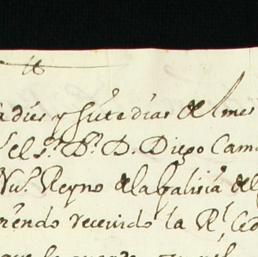 a dies y siete dias del mes
el S.r D.r D. Diego Cam
Nu.o Reyno de la Galisia del
iendo recevido la R.l Ced